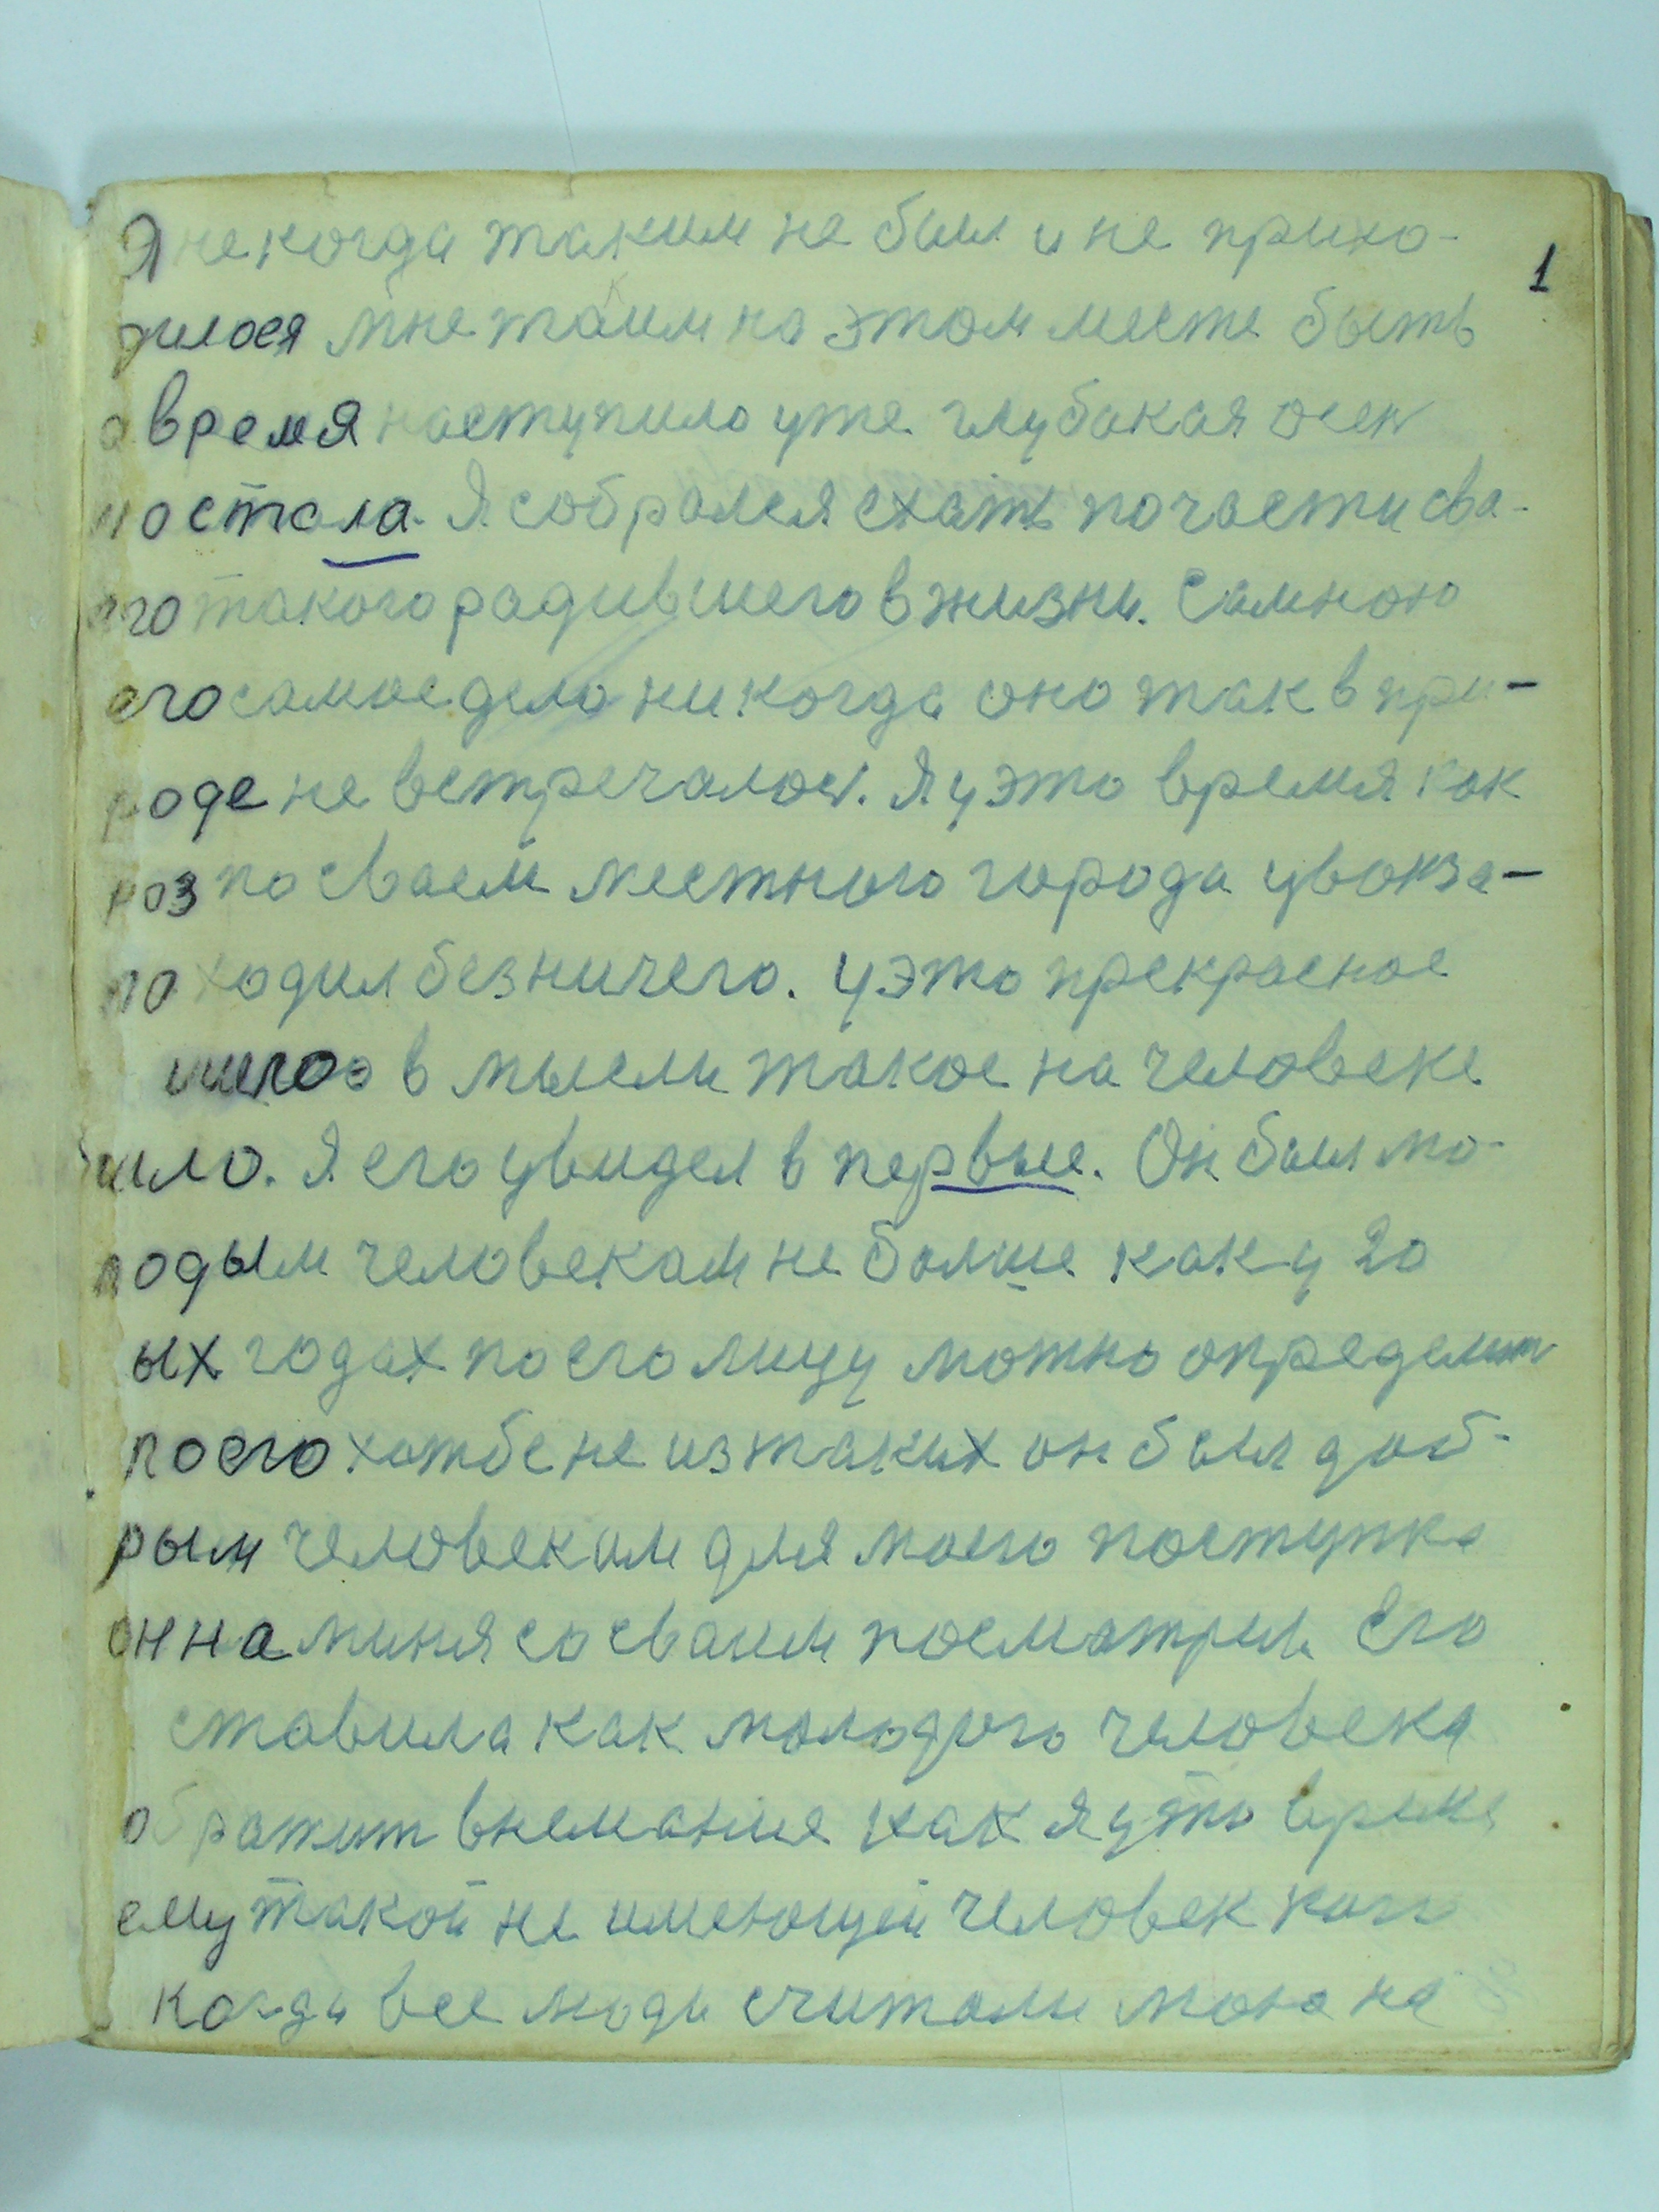 Я некогда таким не был и не прихо-
1
дилося мне таким на этом месте быть
а время наступило уже глубакая осен
настала. Я собрался ехать по части сва-
его такого радившего в жизни. Самною
его самое дело никогда оно так в при-
роде не встречалось. Я у это время как
раз по сваем местного города у вокза-
ла ходил безничего. У это прекрасное
в мысли такое на человеке
было. Я его увидел в первые. Он был мо-
лодым человекам не болше как у 20
ых годах по его лицу можно определит
по его хотбе не из таких он был доб-
рым человекам для моего поступка
он на миня со сваим посматрил Его
ставила как молодого человека
обратит внемание как я у это время
ему такой не имеющей человек
когда все люди считали мою на